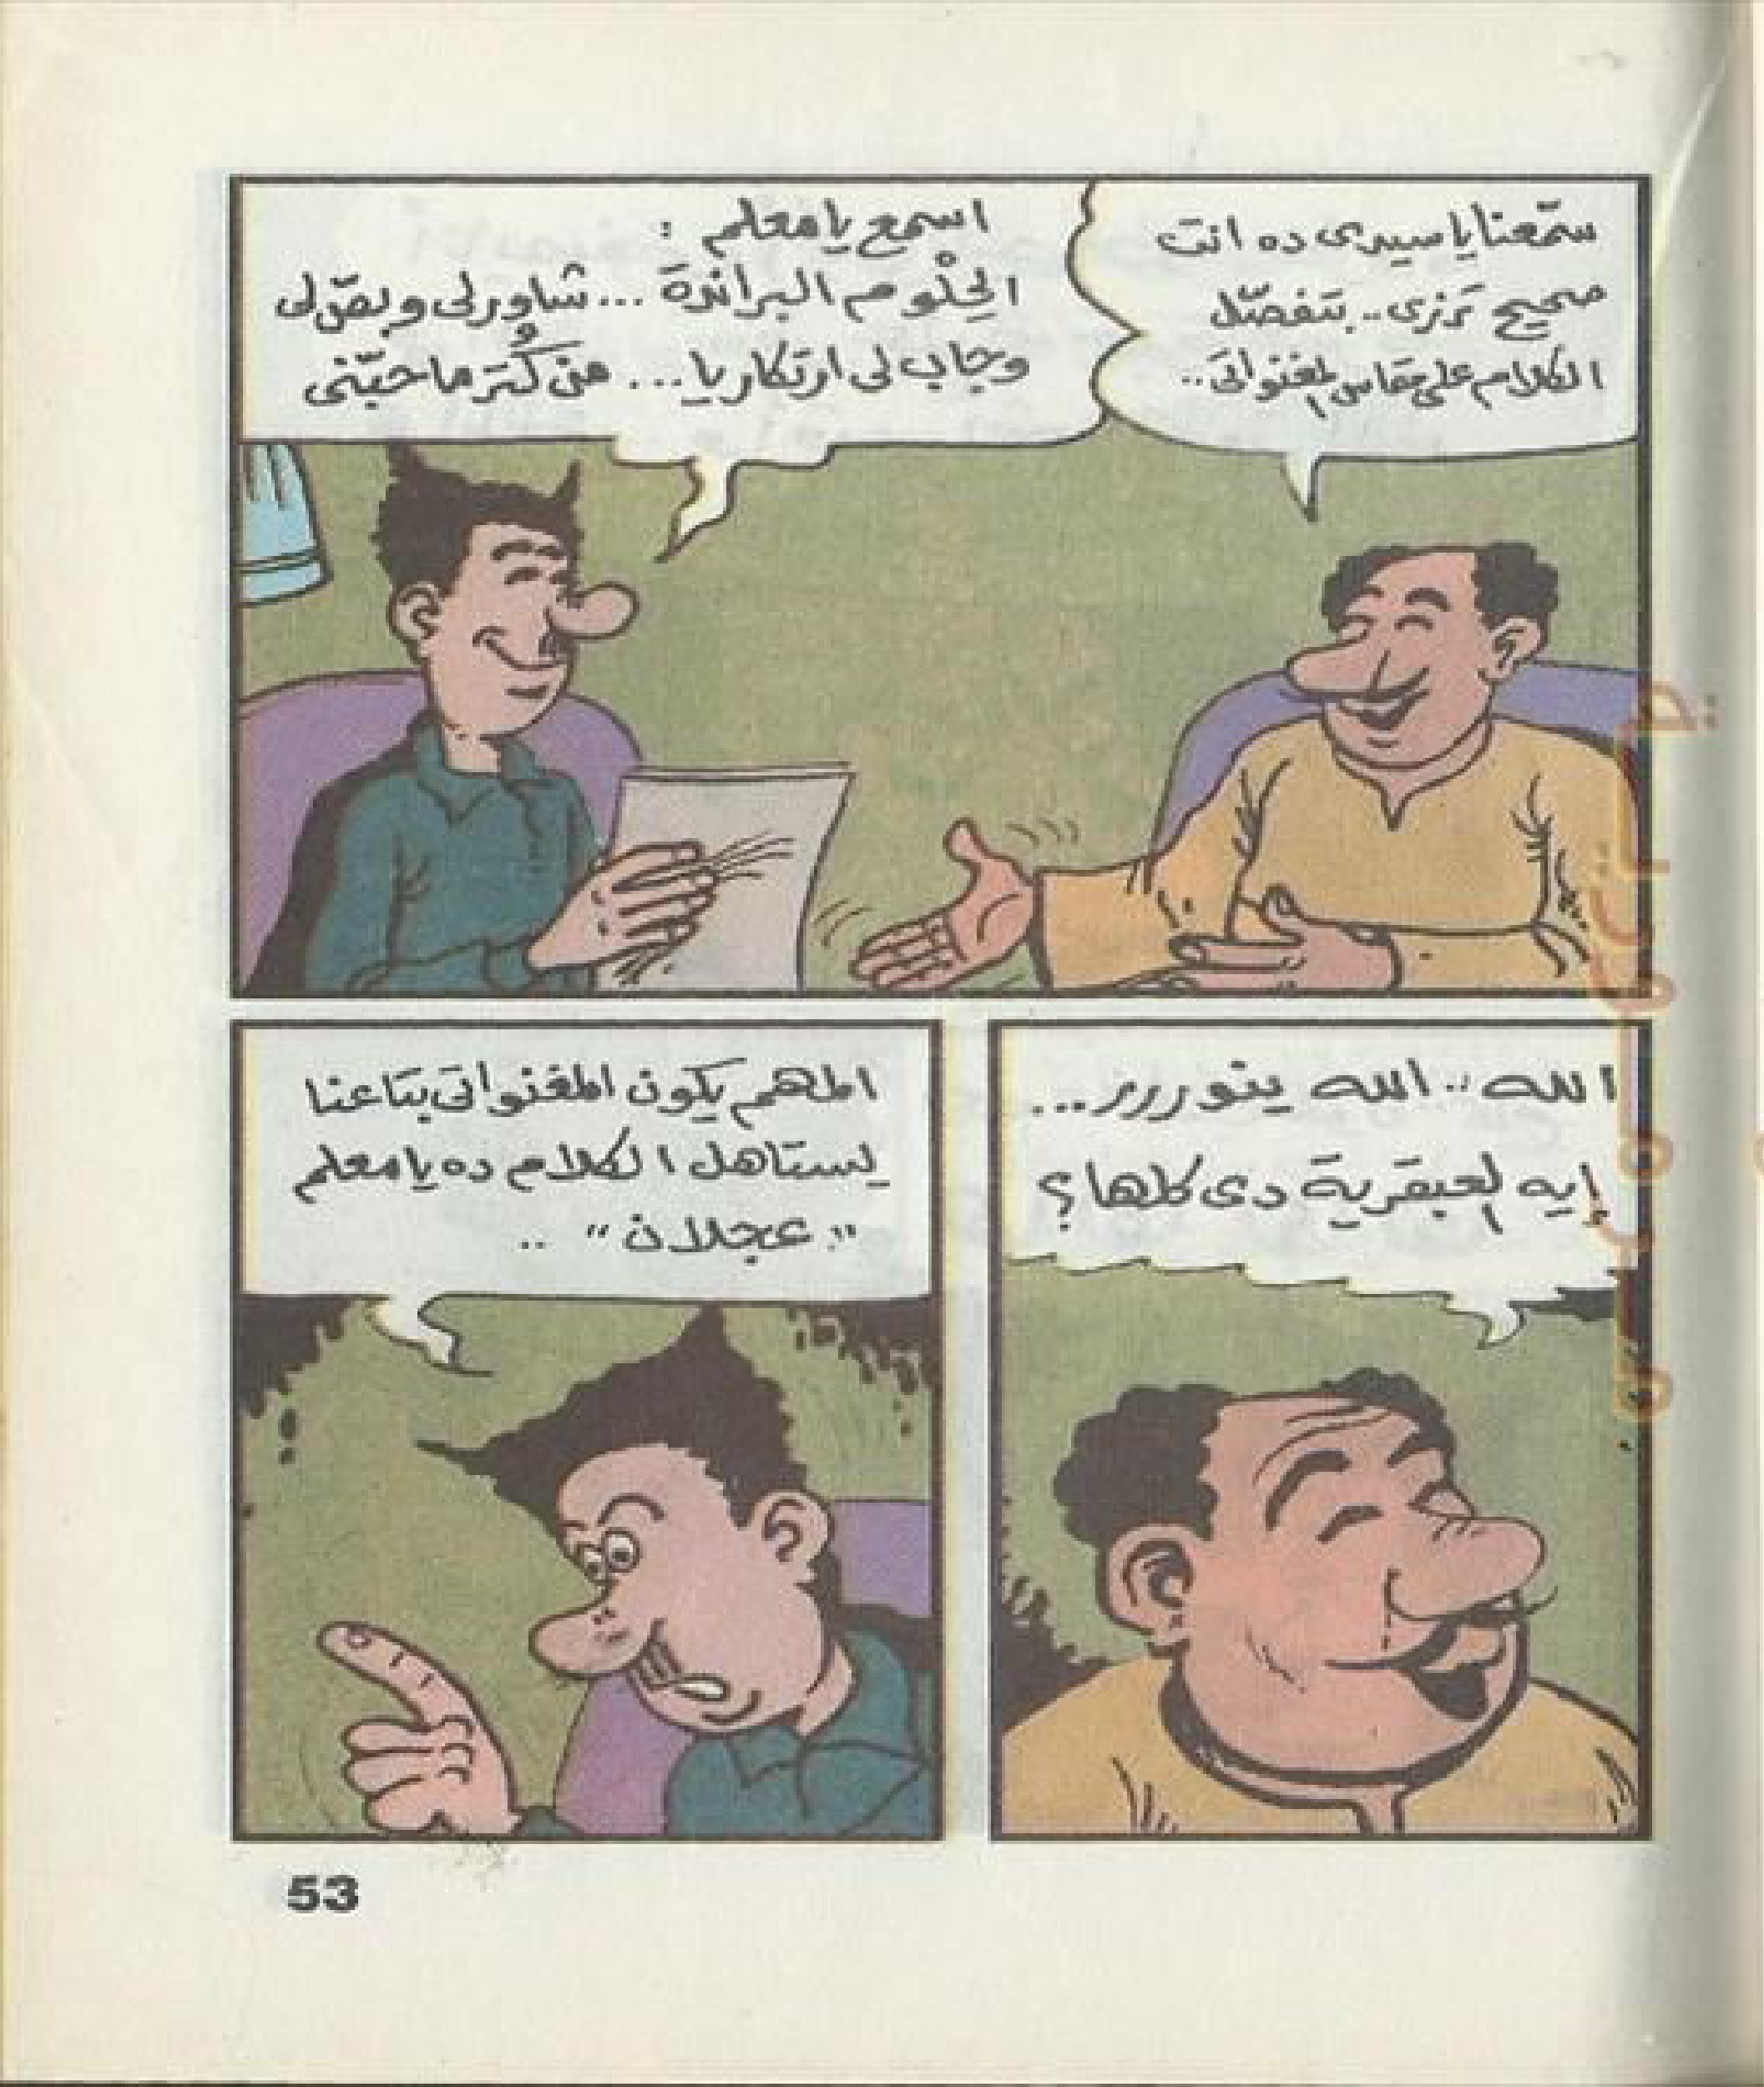 سمّعنا يا سيدى ده انت
صحيح ترزى.. بتفصّل
الكلام على مقاس المغنواتى..
اسمع يا معلم :
الحِلْوم البراندة ... شاورلى وبصّ لى
وجاب لى ارتكاريا ... من كُتر ما حبّنى
الله .. الله ينوررر ...
إيه العبقرية دى كلها؟
المهم يكون المغنواتى بتاعنا
يستاهل الكلام ده يا معلم
"عجلان" ..
53